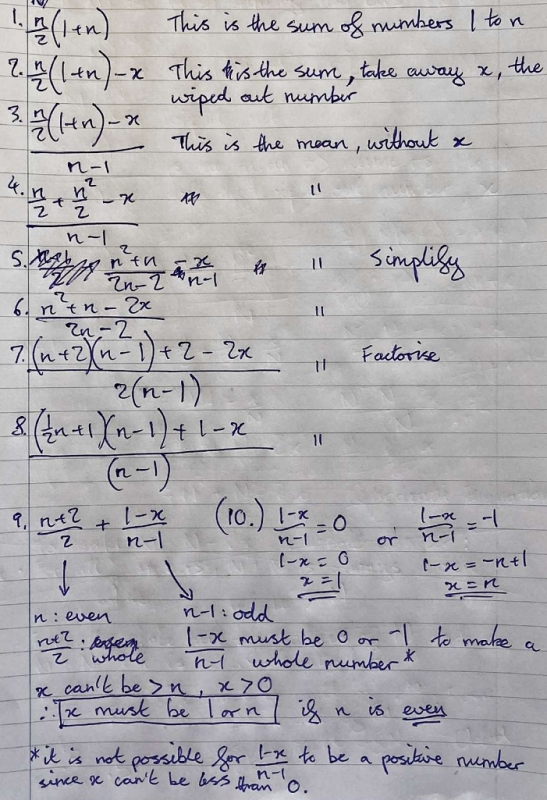 1. n/2 (1+n) This is the sum of numbers 1 to n
2. n/2 (1+n) - x This is the sum, take away x, the
wiped out number
3. (n/2 (1+n) - x)/(n-1) This is the mean, without x
4. (n/2 + n²/2 - x)/(n-1) "
5. (n²+n)/(2n-2) - x/(n-1) " Simplify
6. (n²+n-2x)/(2n-2) "
7. ((n+2)(n-1)+2-2x)/(2(n-1)) " Factorise
8. ((½n+1)(n-1)+1-x)/(n-1) "
9. (n+2)/2 + (1-x)/(n-1) (10.) (1-x)/(n-1) = 0 or (1-x)/(n-1) = -1
1-x = 0 1-x = -n+1
x=1 x=n
↓ ↘
n: even n-1: odd
(n+2)/2: whole (1-x)/(n-1) must be 0 or -1 to make a
whole number*
x can't be >n, x>0
∴ x must be 1 or n if n is even
*it is not possible for (1-x)/(n-1) to be a positive number
since x can't be less than 0.